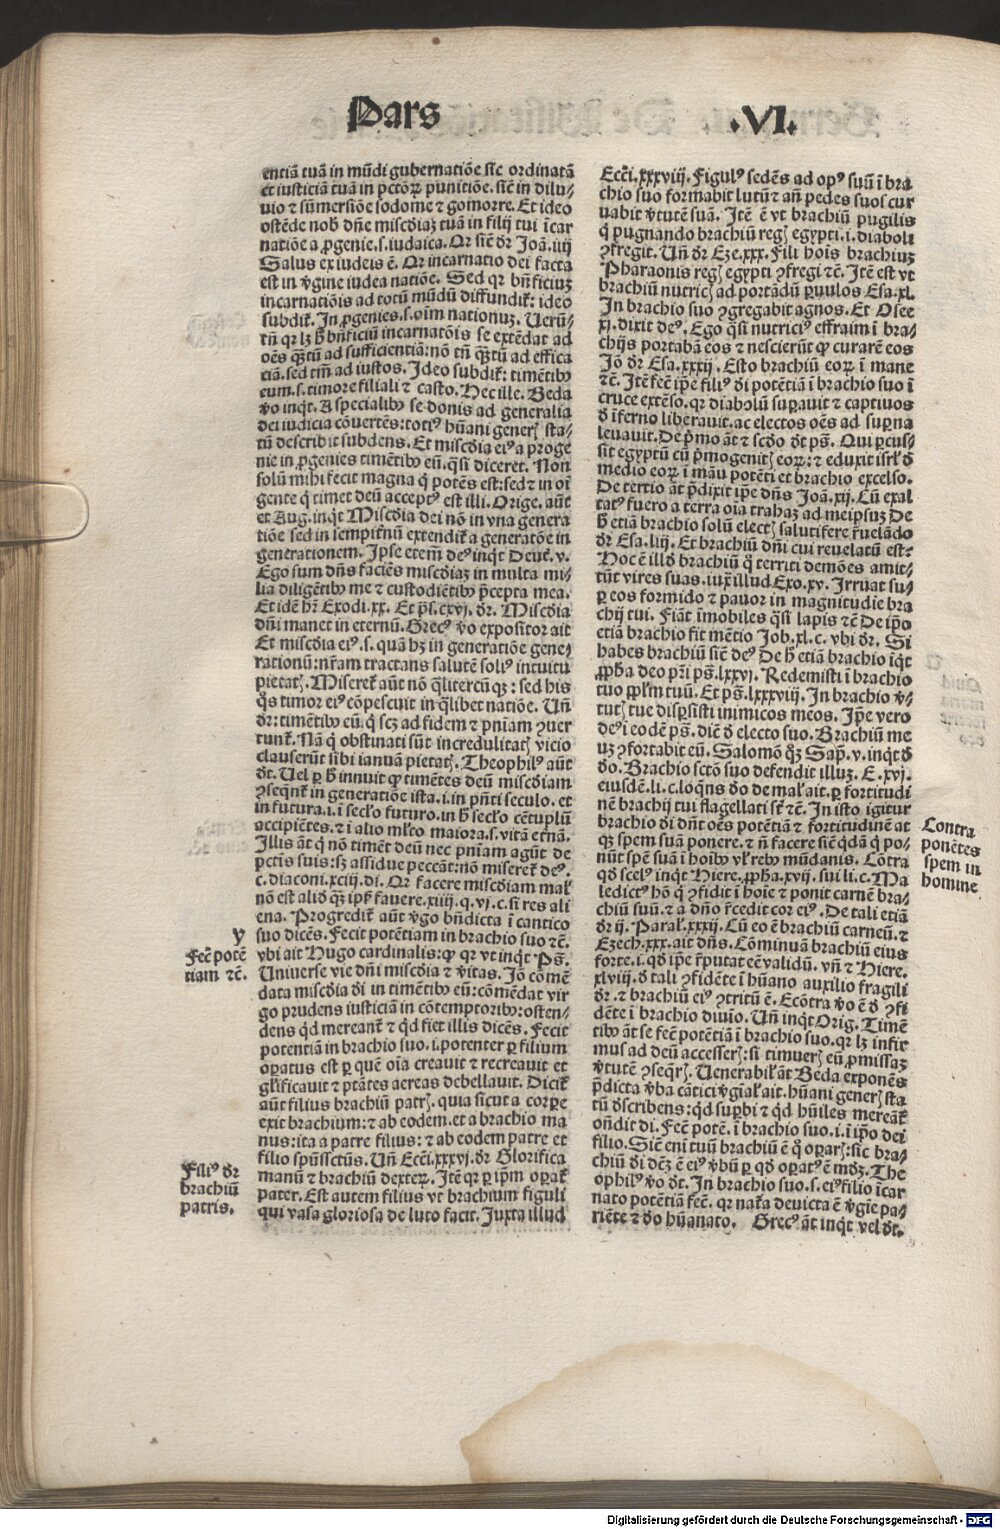 Pars .VI.
entiā tuā in mūdi gubernatiōe sic̄ ordinatā
et iusticiā tuā in pctōꝝ punitiōe. sic̄ in dilu⸗
uio ⁊ sūmersiōe sodome ⁊ gomorre. Et ideo
ostēde nob̄ dn̄e miscd̓iaꝫ tuā in filij tui īcar
natiōe a ꝓgenie .s. iudaica. Qr sic̄ dr̄ Joā. iiij
Salus ex iudeis ē. Qr incarnatio dei facta
est in v̓gine iudea natiōe. Sed qr bn̄ficiuꝫ
incarnatiōis ad totū mūdū diffundit᷑: ideo
subdit᷑. In ꝓgenies .s. oīm nationuꝫ. Uerū⸗
tn̄ qr lꝫ h̄ bn̄ficiū incarnatōis se extēdat ad
oēs qꝫtū ad sufficientiā: nō tn̄ qꝫtū ad effica
ciā. sed tm̄ ad iustos. Ideo subdit᷑: timētibꝰ
eum .s. timore filiali ⁊ casto. Hec ille. Beda
v̓o inqt̄. A specialibꝰ se donis ad generalia
dei iudicia cōuertēs: totiꝰ hūani generꝭ sta⸗
tū describit subdens. Et miscd̓ia eiꝰ a proge
nie in ꝓgenies timētibꝰ eū. qsi diceret. Non
solū mihi fecit magna q potēs est: sed ⁊ in oī
gente q timet deū acceptꝰ est illi. Orige. aūt
et Aug. inqt̄ Miscd̓ia dei nō in vna genera
tiōe sed in sempit̓nū extendit᷑ a generatōe in
generationem. Ipse etem̄ deꝰ inqt̄ Deut̄. v.
Ego sum dn̄s faciēs miscd̓iaꝫ in multa mi⸗
lia diligētibꝰ me ⁊ custodiētibꝰ p̄cepta mea.
Et idē hr̄ Exodi. xx. Et ps̄. cxvj. dr̄. Miscd̓ia
dn̄i manet in eternū. Grecꝰ v̓o expositor ait
Et miscd̓ia eiꝰ .s. quā hꝫ in generatiōe gene⸗
rationū: nr̄am tractans salutē soliꝰ intuitu
pietatꝭ. Miseret᷑ aūt nō qlitercūqꝫ: sed his
qs timor eiꝰ cōpescuit in qlibet natiōe. Un̄
dr̄: timētibꝰ eū. q scꝫ ad fidem ⁊ pn̄iam ꝯuer
tunt᷑. Nā q obstinati sūt incredulitatꝭ vicio
clauserūt sibi ianuā pietatꝭ. Theophilꝰ aūt
dt̄. Uel ꝑ h̄ innuit ꝙ timētes deū miscd̓iam
ꝯseqn̄t᷑ in generatiōe ista .i. in pn̄ti seculo. et
in futura .i. ī secl̓o futuro. in h̄ secl̓o cētuplū
accipiētes. ⁊ ī alio ml̓to maiora .s. vitā et̓nā.
Illis āt q nō timēt deū nec pn̄iam agūt de
pctīs suis: sꝫ assidue peccāt: nō miseret᷑ deꝰ.
c. diaconi. xciij. di. Qr facere miscd̓iam mal̓
nō est aliō qꝫ ip̄is fauere. xiiij. q. vj. c. si res ali
ena. Progredit᷑ aūt v̓go bn̄dicta ī cantico
suo dicēs. Fecit potētiam in brachio suo ⁊c̄.
vbi ait Hugo cardinalis: ꝙ qr vt inqt̄ Ps̄.
Uniuerse vie dn̄i miscd̓ia ⁊ v̓itas. Jō cōmē
data miscd̓ia dī in timētibꝰ eū: cōmēdat vir
go prudens iusticiā in cōtemptoribꝰ: osten⸗
dens qd mereant᷑ ⁊ qd fiet illis dicēs. Fecit
potentiā in brachio suo .i. potenter ꝑ filium
oꝑatus est ꝑ quē oīa creauit ⁊ recreauit et
gl̓ificauit ⁊ ptātes aereas debellauit. Dicit᷑
aūt filius brachiū patrꝭ. quia sicut a corꝑe
exit brachium: ⁊ ab eodem. et a brachio ma
nus: ita a patre filius: ⁊ ab eodem patre et
filio spūssctūs. Un̄ Ecci̓. xxxvj. dr̄ Glorifica
manū ⁊ brachiū dexteꝝ. Itē qr ꝑ ip̄m oꝑat᷑
pater. Est autem filius vt brachium figuli
qui vasa gloriosa de luto facit. Juxta illud
y
Fec̄ potē
tiam ⁊c̄.
Filiꝰ dr̄
brachiū
patris.
Ecci̓. xxxviij. Figulꝰ sedēs ad opꝰ suū ī bra
chio suo formabit lutū ⁊ an̄ pedes suos cur
uabit v̓tutē suā. Itē ē vt brachiū pugilis
q pugnando brachiū regꝭ egypti .i. diaboli
ꝯfregit. Un̄ dr̄ Eze. xxx. Fili hoīs brachiuꝫ
Pharaonis regꝭ egypti ꝯfregi ⁊c̄. Itē est vt
brachiū nutricꝭ ad portādū ꝑuulos Esa. xl.
In brachio suo ꝯgregabit agnos. Et Osee
xj. dixit deꝰ. Ego qsi nutriciꝰ effraim ī bra⸗
chijs portabā eos ⁊ nescierūt ꝙ curarē eos
Jō dr̄ Esa. xxxij. Esto brachiū eoꝝ ī mane
⁊c̄. Itē fec̄ ip̄e filiꝰ dī potētiā ī brachio suo ī
cruce extēso. qr diabolū suꝑauit ⁊ captiuos
d̓ īferno liberauit. ac electos oēs ad suꝑna
leuauit. De p̓mo āt ⁊ scd̓o dt̄ ps̄. Qui ꝑcus⸗
sit egyptū cū p̓mogenitꝭ eoꝝ: ⁊ eduxit isrl̓ d̓
medio eoꝝ ī māu potēti et brachio excelso.
De tertio āt p̄dixit ip̄e dn̄s Joā. xij. Cū exal
tatꝰ fuero a terra oīa trahaꝫ ad meipsuꝫ De
h̄ etiā brachio solū electꝭ salutifere r̓uelādo
dr̄ Esa. liij. Et brachiū dn̄i cui reuelatū est?
Hoc ē illd̓ brachiū q̓ territi demōes amit⸗
tūt vires suas. iux̄ illud Exo. xv. Irruat su⸗
ꝑ eos formido ⁊ pauor in magnitudīe bra
chij tui. Fiāt īmobiles qsi lapis ⁊c̄ De ip̄o
etiā brachio fit mētio Job. xl. c. vbi dr̄. Si
habes brachiū sic̄ deꝰ De h̄ etiā brachio iqt̄
ꝓph̄a deo pr̄i ps̄. lxxvj. Redemisti ī brachio
tuo ꝓpl̓m tuū. Et ps̄. lxxxviij. In brachio v̓⸗
tutꝭ tue disꝑsisti inimicos meos. Ip̄e vero
deꝰ ī eodē ps̄. dic̄ d̓ electo suo. Brachiū me
uꝫ ꝯfortabit eū. Salomō qꝫ Sap̄. v. inqt̄ d̓
d̓o. Brachio sctō suo defendit illuꝫ. E. xvj.
eiusdē. li. c. loq̄ns d̓o de mal̓ ait. ꝑ fortitudi
nē brachij tui flagellati st̄ ⁊c̄. In isto igitur
brachio dī dn̄t oēs potētiā ⁊ fortitudinē at
qꝫ spem suā ponere. ⁊ n̄ facere sic̄ qdā q po⸗
nūt spē suā ī hoībꝰ vl̓ rebꝰ mūdanis. Cōtra
qd̓ scelꝰ inqt̄ Hiere. ꝓph̄a. xvij. sui li. c. Ma
ledictꝰ hō q ꝯfidit ī hoīe ⁊ ponit carnē bra⸗
chiū suū. ⁊ a dn̄o r̓cedit cor eiꝰ. De tali etiā
dr̄ ij. Paral̓. xxxij. Cū eo ē brachiū carneū. ⁊
Ezech. xxx. ait dn̄s. Cōminuā brachiū eius
forte .i. qd̓ ip̄e r̓putat eē validū. vn̄ ⁊ Hiere.
xlviij. d̓ tali ꝯfidēte ī hūano auxilio fragili
dr̄. ⁊ brachiū eiꝰ ꝯtritū ē. Ecōtra v̓o ē d̓ ꝯfi
dēte ī brachio diuīo. Un̄ inqt̄ Orig. Timē
tibꝰ āt se fec̄ potētiā ī brachio suo. qr lꝫ infir
mus ad deū accesserꝭ: si timuerꝭ eū ꝓmissaꝫ
v̓tutē ꝯseqrꝭ. Uenerabil̓ āt Beda exponēs
p̄dicta v̓ba cātici v̓gīal̓ ait. hūani generꝭ sta
tū d̓scribens: qd suꝑbi ⁊ qd hūiles mereāt᷑
on̄dit dī. Fec̄ potē. ī brachio suo .i. ī ip̄o dei
filio. Sic̄ eni tuū brachiū ē q̓ oꝑarꝭ: sic bra⸗
chiū dī dēꝫ ē eiꝰ v̓bū ꝑ qd̓ oꝑatꝰ ē mdꝫ. The
ophilꝰ v̓o dt̄. In brachio suo .s. eiꝰ filio īcar
nato potētiā fec̄. qr nat̄a deuicta ē v̓gīe pa⸗
riēte ⁊ d̓o hūanato. Grecꝰ āt inqt̄ vel dt̄.
Contra
ponētes
spem in
homine
Digitalisierung gefördert durch die Deutsche Forschungsgemeinschaft - DFG